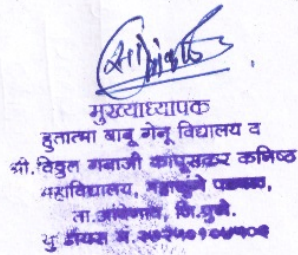 मुख्याध्यापक
हुतात्मा बाबू गेनू विद्यालय व
श्री. विठ्ठल गबाजी कापूसकर कनिष्ठ
महाविद्यालय, महाळुंगे पडवळ,
ता. आंबेगाव, जि. पुणे.
यु डायस नं.